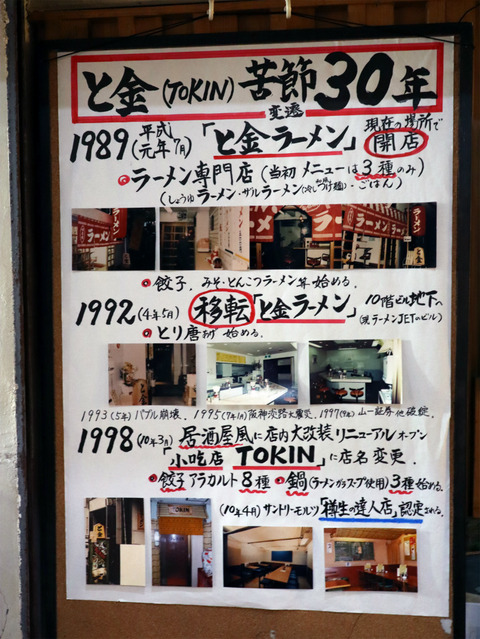 と金(TOKIN)苦節30年
変遷
1989(平成元年7月)「と金ラーメン」現在の場所で開店
ラーメン専門店(当初 メニューは3種のみ)
(しょうゆラーメン・ザルラーメン(冷し和風つけ麺)・ごはん)
ラーメン
ラーメン
ラーメン
餃子、みそ・とんこつラーメン等 始める。
1992(4年5月)移転「と金ラーメン」10階ビル地下へ
(現ラーメンJETのビル)
とり唐揚げ 始める。
1993(5年)バブル崩壊、1995(7年1月)阪神淡路大震災、1997(9年)山一証券他破綻。
1998(10年3月)居酒屋風に店内大改装 リニューアル オープン
「小吃店 TOKIN」に店名変更。
餃子アラカルト8種 鍋(ラーメンガラスープ使用)3種始める。
(10年4月)サントリーモルツ「樽生の達人店」認定される。
TOKIN